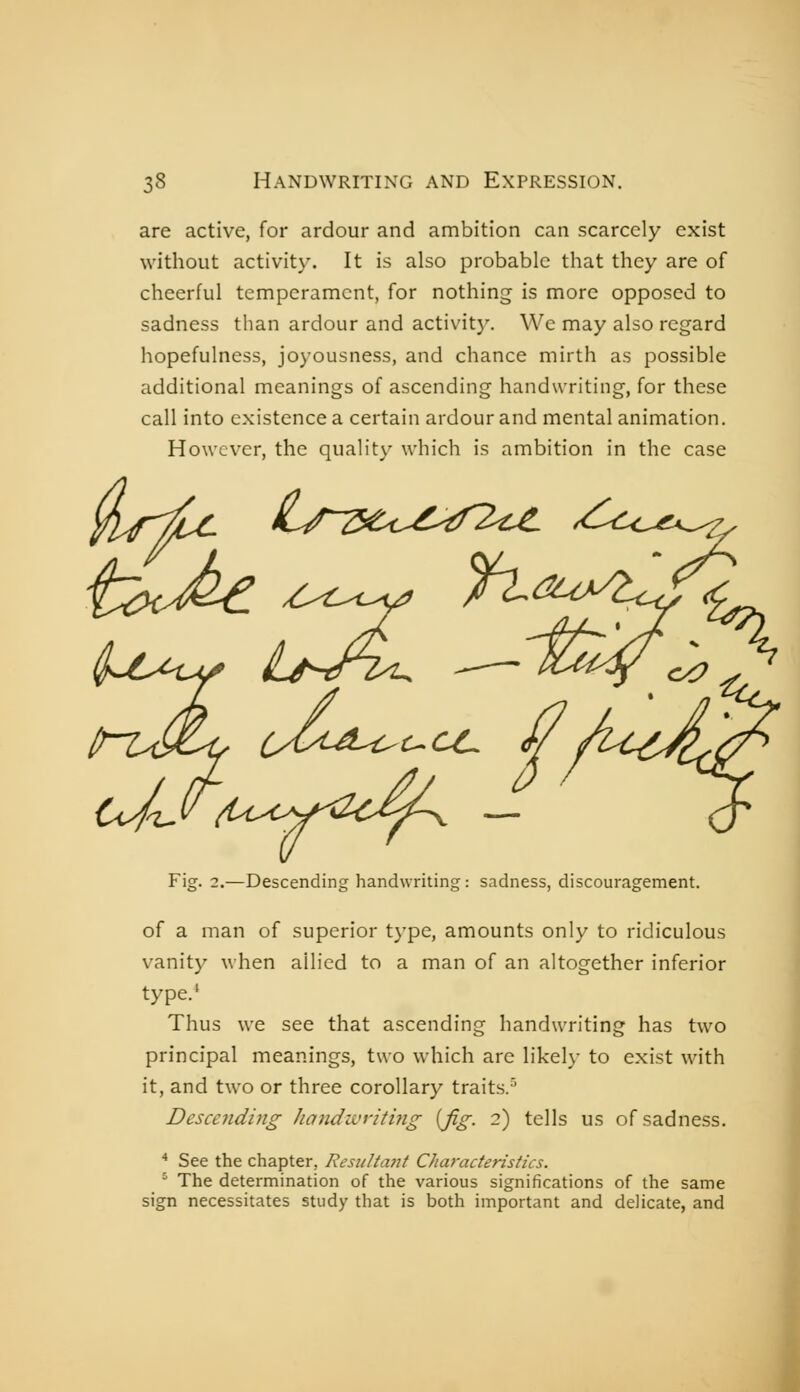 38 HANDWRITING AND EXPRESSION.
are active, for ardour and ambition can scarcely exist
without activity. It is also probable that they are of
cheerful temperament, for nothing is more opposed to
sadness than ardour and activity. We may also regard
hopefulness, joyousness, and chance mirth as possible
additional meanings of ascending handwriting, for these
call into existence a certain ardour and mental animation.
However, the quality which is ambition in the case
Fig. 2.—Descending handwriting: sadness, discouragement.
of a man of superior type, amounts only to ridiculous
vanity when allied to a man of an altogether inferior
type.⁴
Thus we see that ascending handwriting has two
principal meanings, two which are likely to exist with
it, and two or three corollary traits.⁵
Descending handwriting (fig. 2) tells us of sadness.
⁴ See the chapter, Resultant Characteristics.
⁵ The determination of the various significations of the same
sign necessitates study that is both important and delicate, and